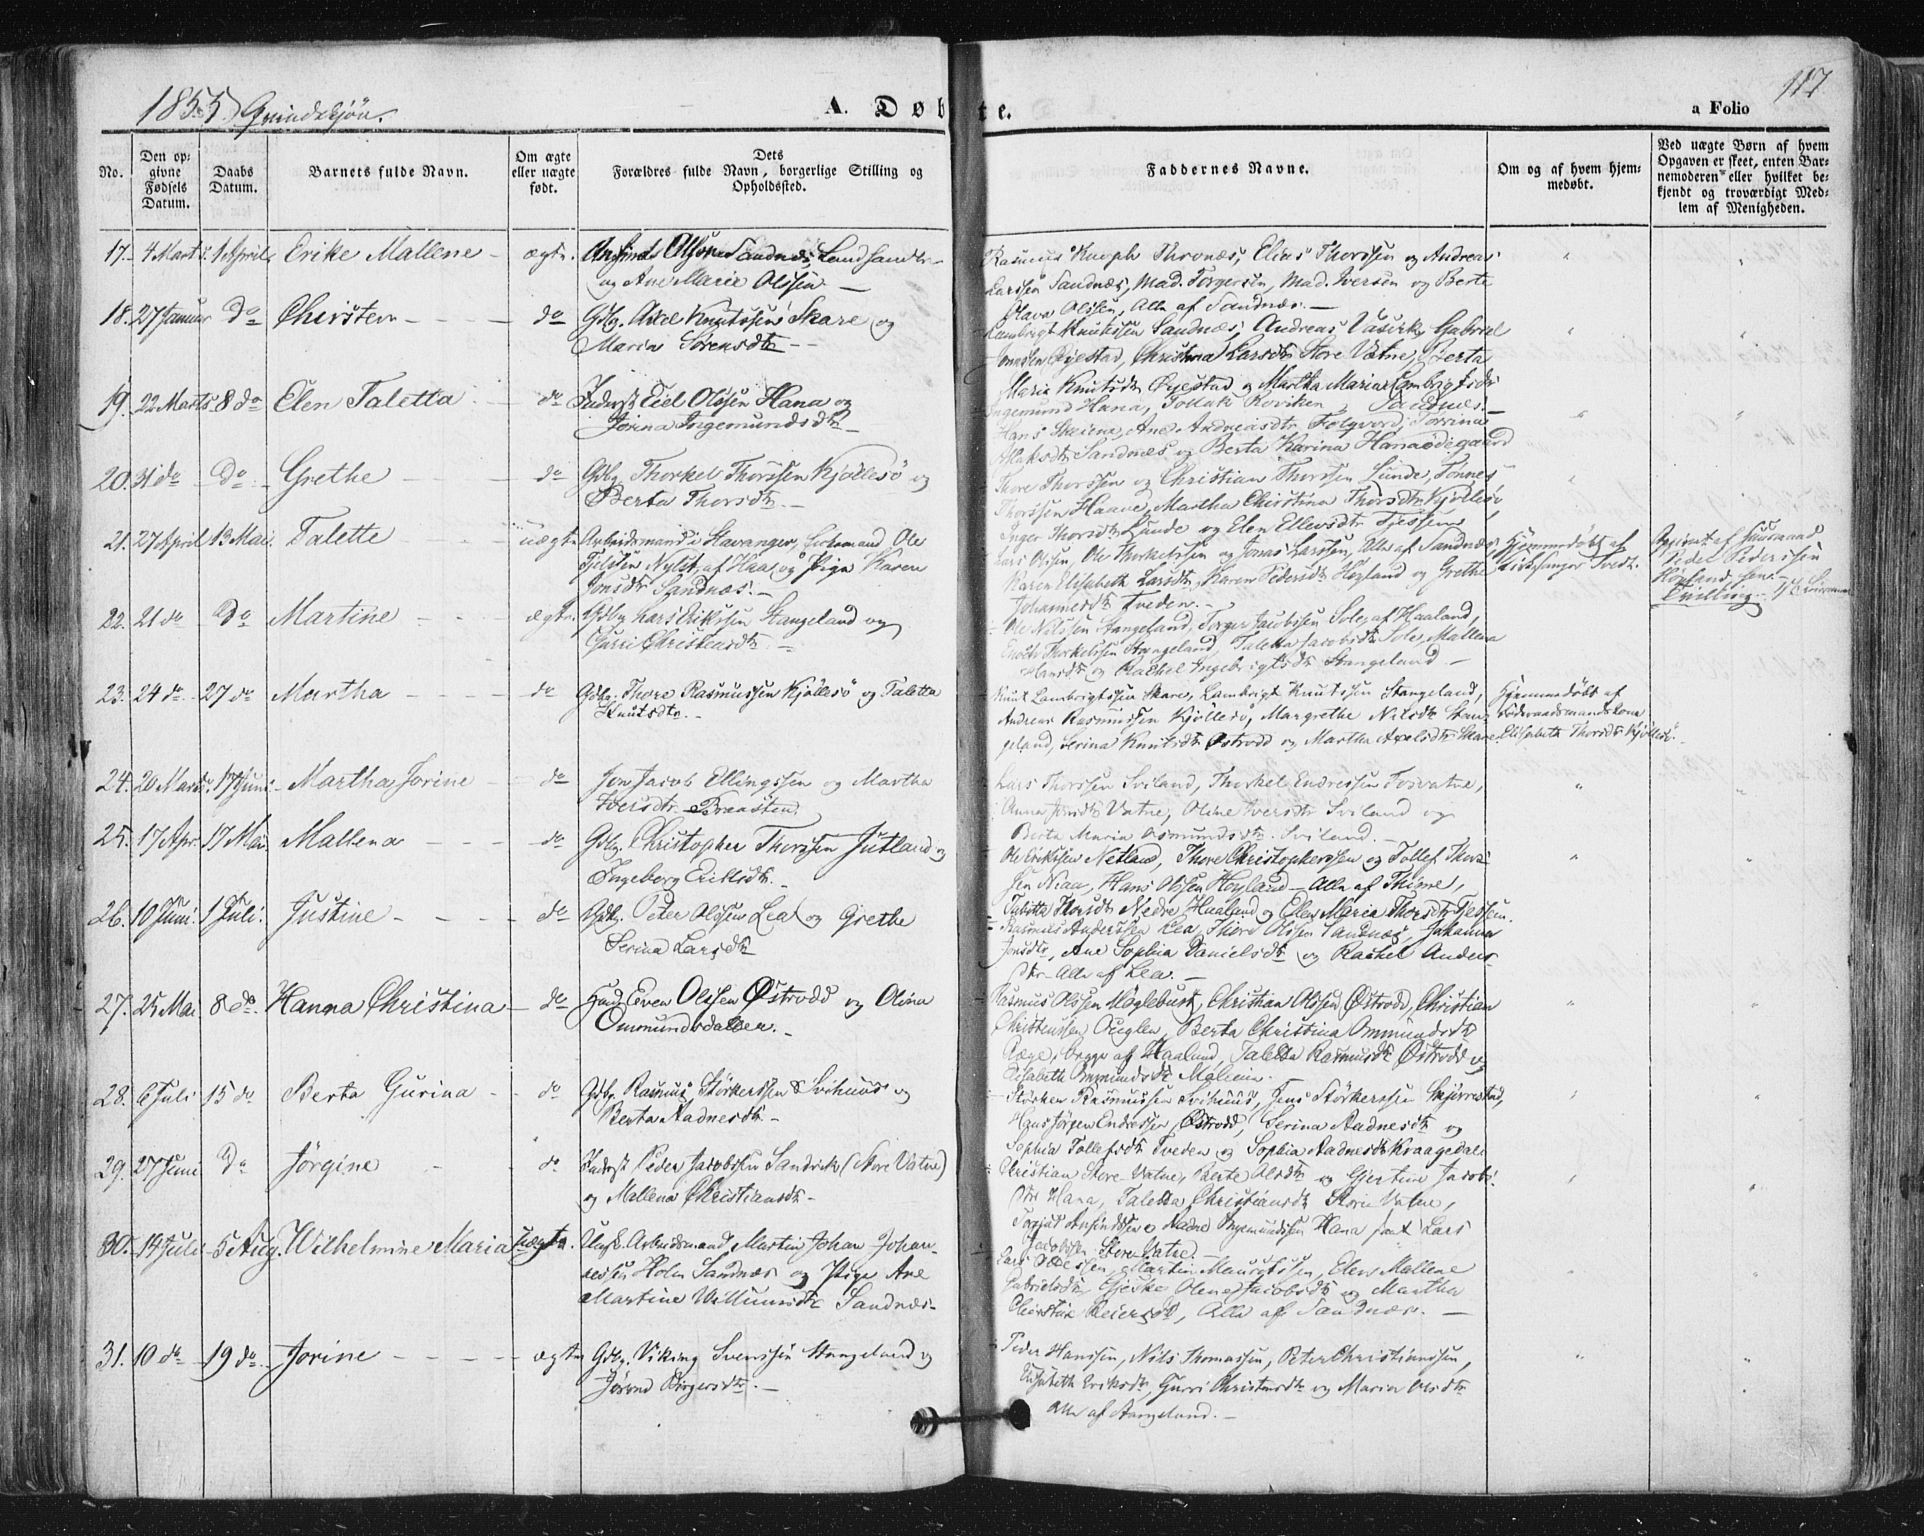 1855 Qvindekjön.
A. Døbte.
a Folio 117
No.
Den opgivne Fødsels Datum.
Daabs Datum.
Barnets fulde Navn.
Om ægte eller uægte født.
Dets Forældres fulde Navn, borgerlige Stilling og Opholdsted.
Faddernes Navne.
Om og af hvem hjemmedøbt.
Ved uægte Børn af hvem Opgaven er skeet, enten Barnemoderen eller hvilket bekjendt og troværdigt Medlem af Menigheden.
17. 4 Marts 1 April Erike Mallene ægte Olsen Sandnæs, Landhandler
og Ane Marie Olsen
Rasmus Knoph Thronæs, Elias Thorssen og Andreas
Larssen Sandnæs, Mad. Torgersen, Mad. Iversen og Berte
Olava Olssen, Alle af Sandnæs.
18. 27 Januar do Christen do Gdbr. Axel Knutssen Skare og
Maria Sørensdtr
Lambrigt Knutssen Sandnæs, Andreas Gabriel
Øyestad, Christina Larsdtr Store Vatne, Berta
Maria Knutsdtr Øyestad og Martha Maria Lambrigtsdtr
Sandnæs.
19. 22 Marts 8 do Elen Taletta do Inderst Eiel Olssen Hana og
Jorina Ingemundsdtr
Ingemund Hana, Tollak Roviken
Hans Skeiena, Ane Andreasdtr Folgverd, Torrina
Sandnæs og Berta Karina Hanaødegaard
20. 31 do do Grethe do Gdbr. Thorkel Thorssen Kjøllesø og
Berta Thorsdtr.
Thore Thorssen og Christian Thorssen Lunde, Tønnes
Thorssen Haave, Martha Christina Thorsdtr Kjøllesø,
Inger Thorsdtr Lunde og Elen Ellevsdtr Tjessem
21. 27 April 13 Mai. Talette uægte Arbeidsmand i Stavanger, Ole
Nylst, af Haa og Pige Karen
Jonsdtr Sandnæs.
Lars Olssen, Ole Thorkelssen og Jonas Larssen, Alle af Sandnæs,
Karen Elisabeth Larsdtr, Karen Pedersdtr Høyland og Grethe
Johannesdtr Tveden.
Hjemmedøbt af
Kirkesanger Tvedt.
Opgivet af Huusmand
Peder Pederssen
Høyland,
22. 21 do do Martine ægte Gdbr Lars Erikssen Stangeland og
Gurri Christensdtr.
Ole Nilssen Stangeland, Torger Jacobssen Sole, af Haaland,
Enok Thorkelssen Stangeland, Taletta Jacobsdtr Sole, Mallena
Hansdtr og Rachel Ingebrigtsdtr Stangeland
23. 24 do 27 do Martha do Gdbr. Thore Rasmussen Kjøllesø og Taletta
Knutsdtr.
Knut Lambrigtssen Skare, Lambrigt Knutssen Stangeland,
Andreas Rasmussen Kjøllesø, Margrethe Nilsdtr Stangeland,
Serina Knutsdtr Østrodd og Martha Axelsdtr Skare.
Hjemmedøbt af
Føderaadsmandskone
Elisabeth Thorsdtr Kjøllesø.
24. 20 Marts 17 Juni Martha Jorine do Jon Jacob Ellingssen og Martha
Iversdtr Braasten
Lars Thorssen Sviland, Thorkel Endressen Fosvatne,
Anna Jonsdtr Vatne, Oline Iversdtr Sviland og
Berta Maria Asmundsdtr Sviland.
25. 17 Apr. 17 Mai Mallena do Gdbr. Christopher Thorssen Jutland og
Ingeborg Eriksdtr.
Ole Erikssen Netland, Thore Christopherssen og Tollef Thorssen
Niaa, Hans Olssen Høyland Alle af Thime,
Taletta Thorsdtr Nedre Hualand og Elen Maria Thorsdtr Tjessem.
26. 10 Juni. 1 Juli. Justine do Gdbr. Peter Olssen Lea og Grethe
Serina Larsdtr
Rasmus Anderssen Lea, Thore Olssen Sandnæs, Johanna
Jonsdtr, Ane Sophia Danielsdtr og Rachel Andersdtr
Alle af Lea.
27. 25 Mai 8 do. Hanna Christina do Huusmd Even Olssen Østrodd og Olina
Ommundsdatter.
Rasmus Olssen Høgleburt, Christian Olssen Østrodd, Christian
Christenssen Ouglen, Berta Christina Ommundsdtr
Ræge, begge af Haaland, Taletta Rasmusdtr Østrodd og
Elisabeth Ommundsdtr Maleiin.
28. 6 Juli 15 do Berta Gurina do Gdbr. Rasmus Størkerssen Svihuus og
Berta Aadnesdtr.
Størker Rasmussen Svihuus, Jens Størkerssen Skjærrestad,
Hans Jørgen Endressen Østrodd, Serina Aadnesdtr og
Sophia Tollefsdtr Tveden og Sophia Aadnesdtr Kraagedal
29. 27 Juni do Jørgine do Inderst Peder Jacobssen Sandvik (Store Vatne)
og Mallena Christiansdtr
Christian Store Vatne, Berte Olsdtr og Gjertine Jacobsdtr
Hana, Taletta Christiansdtr Store Vatne,
Torjus Ansindssen Aadne Ingemundssen Hana samt Lars
Jacobssen Store Vatne.
30. 14 Juli 5 Aug. Wilhelmine Maria uægte. Ungk. Arbeidsmand Martin Johan Johannessen
Holm Sandnæs og Pige Ane
Martine Willumsdtr Sandnæs
Lars Olssen, Martin Mauritssen, Elen Mallene
Gabrielsdtr, Gjeske Olene Jacobsdtr og Martha
Christine Reiersdtr, Alle af Sandnæs.
31. 10 do 19 do Jorine ægte Gdbr. Viking Svenssen Stangeland og
Jørond Birgersdtr.
Peder Hanssen, Nils Thomassen, Peter Christianssen,
Elisabeth Eriksdtr, Gurri Christensdtr og Maria Olsdtr
Alle af Stangeland.